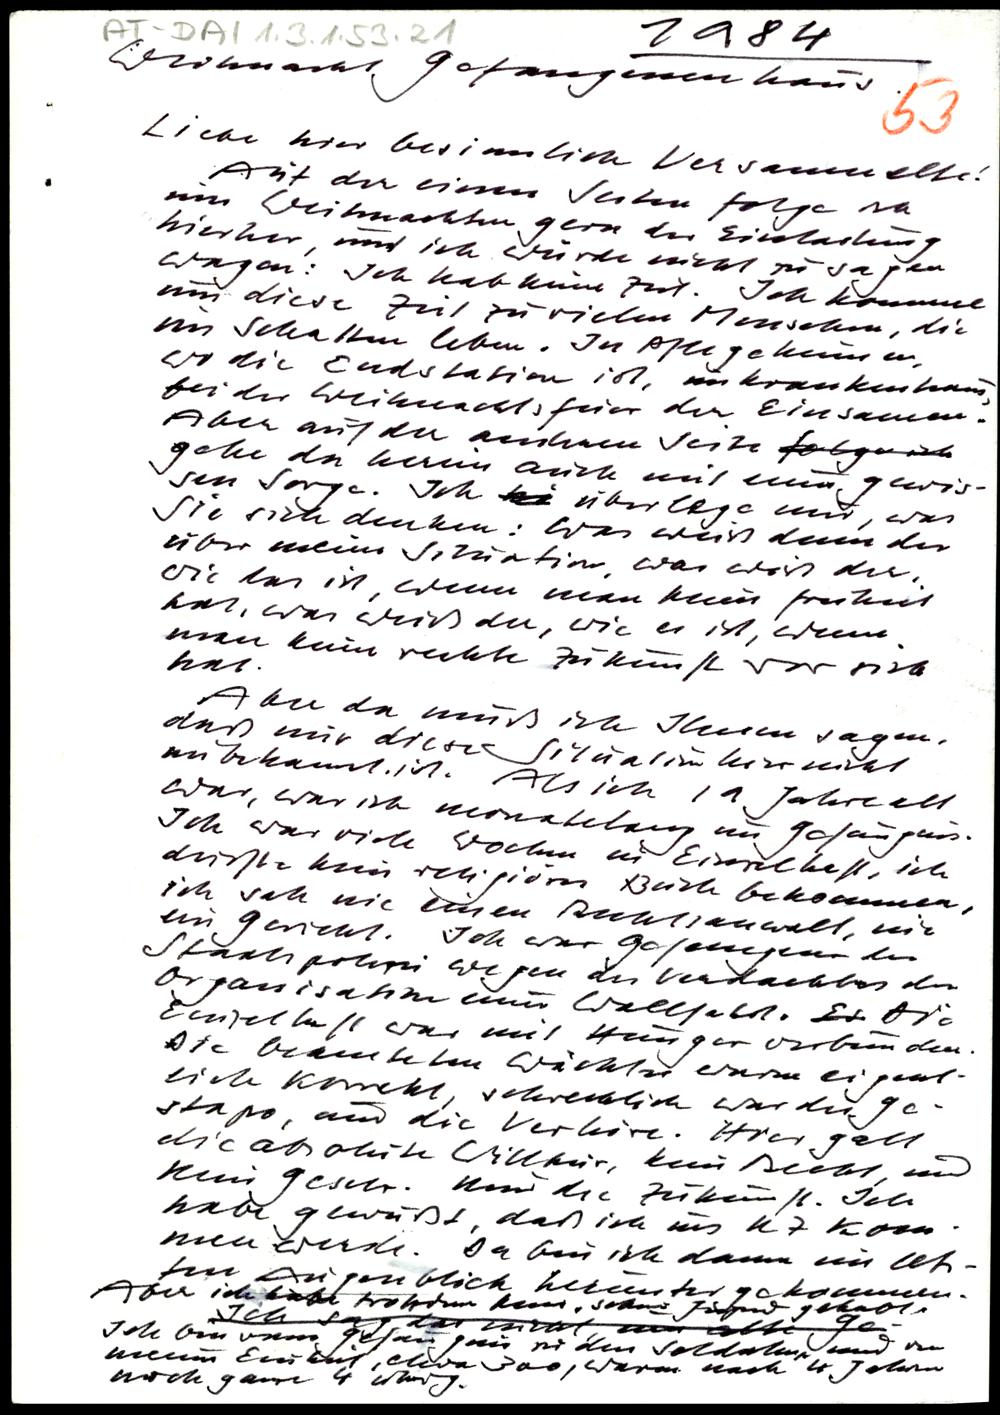 AT-DAI 1.3.1.53.21
1984
Weihnacht Gefangenenhaus
53
Liebe hier besinnlich Versammelte!
Auf der einen Seiten folge ich
um Weihnachten gern der Einladung
hierher, und ich würde nicht zu sagen
wagen: Ich hab keine Zeit. Ich komme
um diese Zeit zu vielen Menschen, die
im Schatten leben. In Pflegeheimen,
wo die Endstation ist, im Krankenhaus,
bei der Weihnachtsfeier der Einsamen.
Aber auf der anderen Seite folge ich
gehe da herein auch mit einer gewis-
sen Sorge. Ich überlege mir, was
Sie sich denken: Was weiß denn der
über meine Situation, was weiß der,
wie das ist, wenn man keine Freiheit
hat, was weiß der, wie es ist, wenn
man keine rechte Zukunft vor sich
hat.
Aber da muß ich Ihnen sagen,
daß mir diese Situation hier nicht
unbekannt ist. Als ich 19 Jahre alt
war, war ich monatelang im Gefängnis.
Ich war viele Wochen in Einzelhaft, ich
durfte kein religiöses Buch bekommen,
ich sah nie einen Rechtsanwalt, nie
ein Gericht. Ich war Gefangener der
Staatspolizei wegen des Verdachtes der
Organisation einer Wallfahrt. Es Die
Einzelhaft war mit Hunger verbunden.
Die beamteten Wächter waren eigent-
lich korrekt, schrecklich war die Ge-
stapo, und die Verhöre. Hier galt
die absolute Willkür, kein Recht, und
kein Gesetz. Und die Zukunft. Ich
habe gewußt, daß ich ins KZ kom-
men werde. Da bin ich dann im letz-
ten Augenblick heruntergekommen.
Aber ich habe trotzdem keine schöne Jugend gehabt.
Ich sag das nicht um alte Ge-
Ich bin vom Gefängnis zu den Soldaten, und von
meiner Einheit, etwa 300, waren nach 4 Jahren
noch ganze 4 übrig.